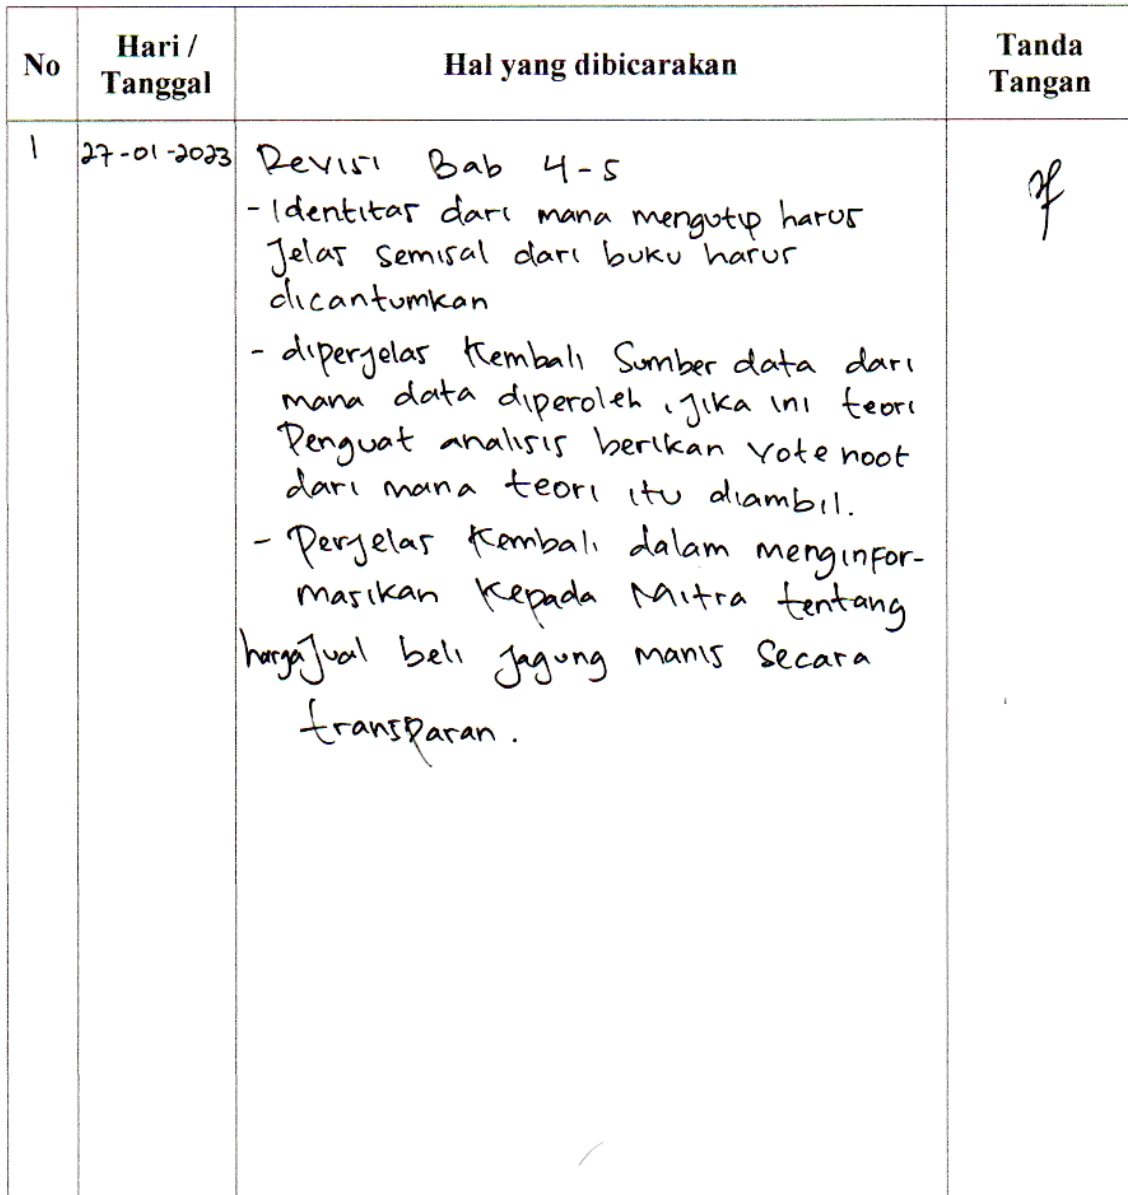 No
Hari /
Tanggal
Hal yang dibicarakan
Tanda
Tangan
1
27-01-2023
Revisi Bab 4-5
- Identitas dari mana mengutip harus
Jelas semisal dari buku harus
dicantumkan
- diperjelas Kembali Sumber data dari
mana data diperoleh, jika ini teori
Penguat analisis berikan votenoot
dari mana teori itu diambil.
- Perjelas Kembali dalam menginfor-
masikan Kepada Mitra tentang
harga Jual beli Jagung manis Secara
transparan.